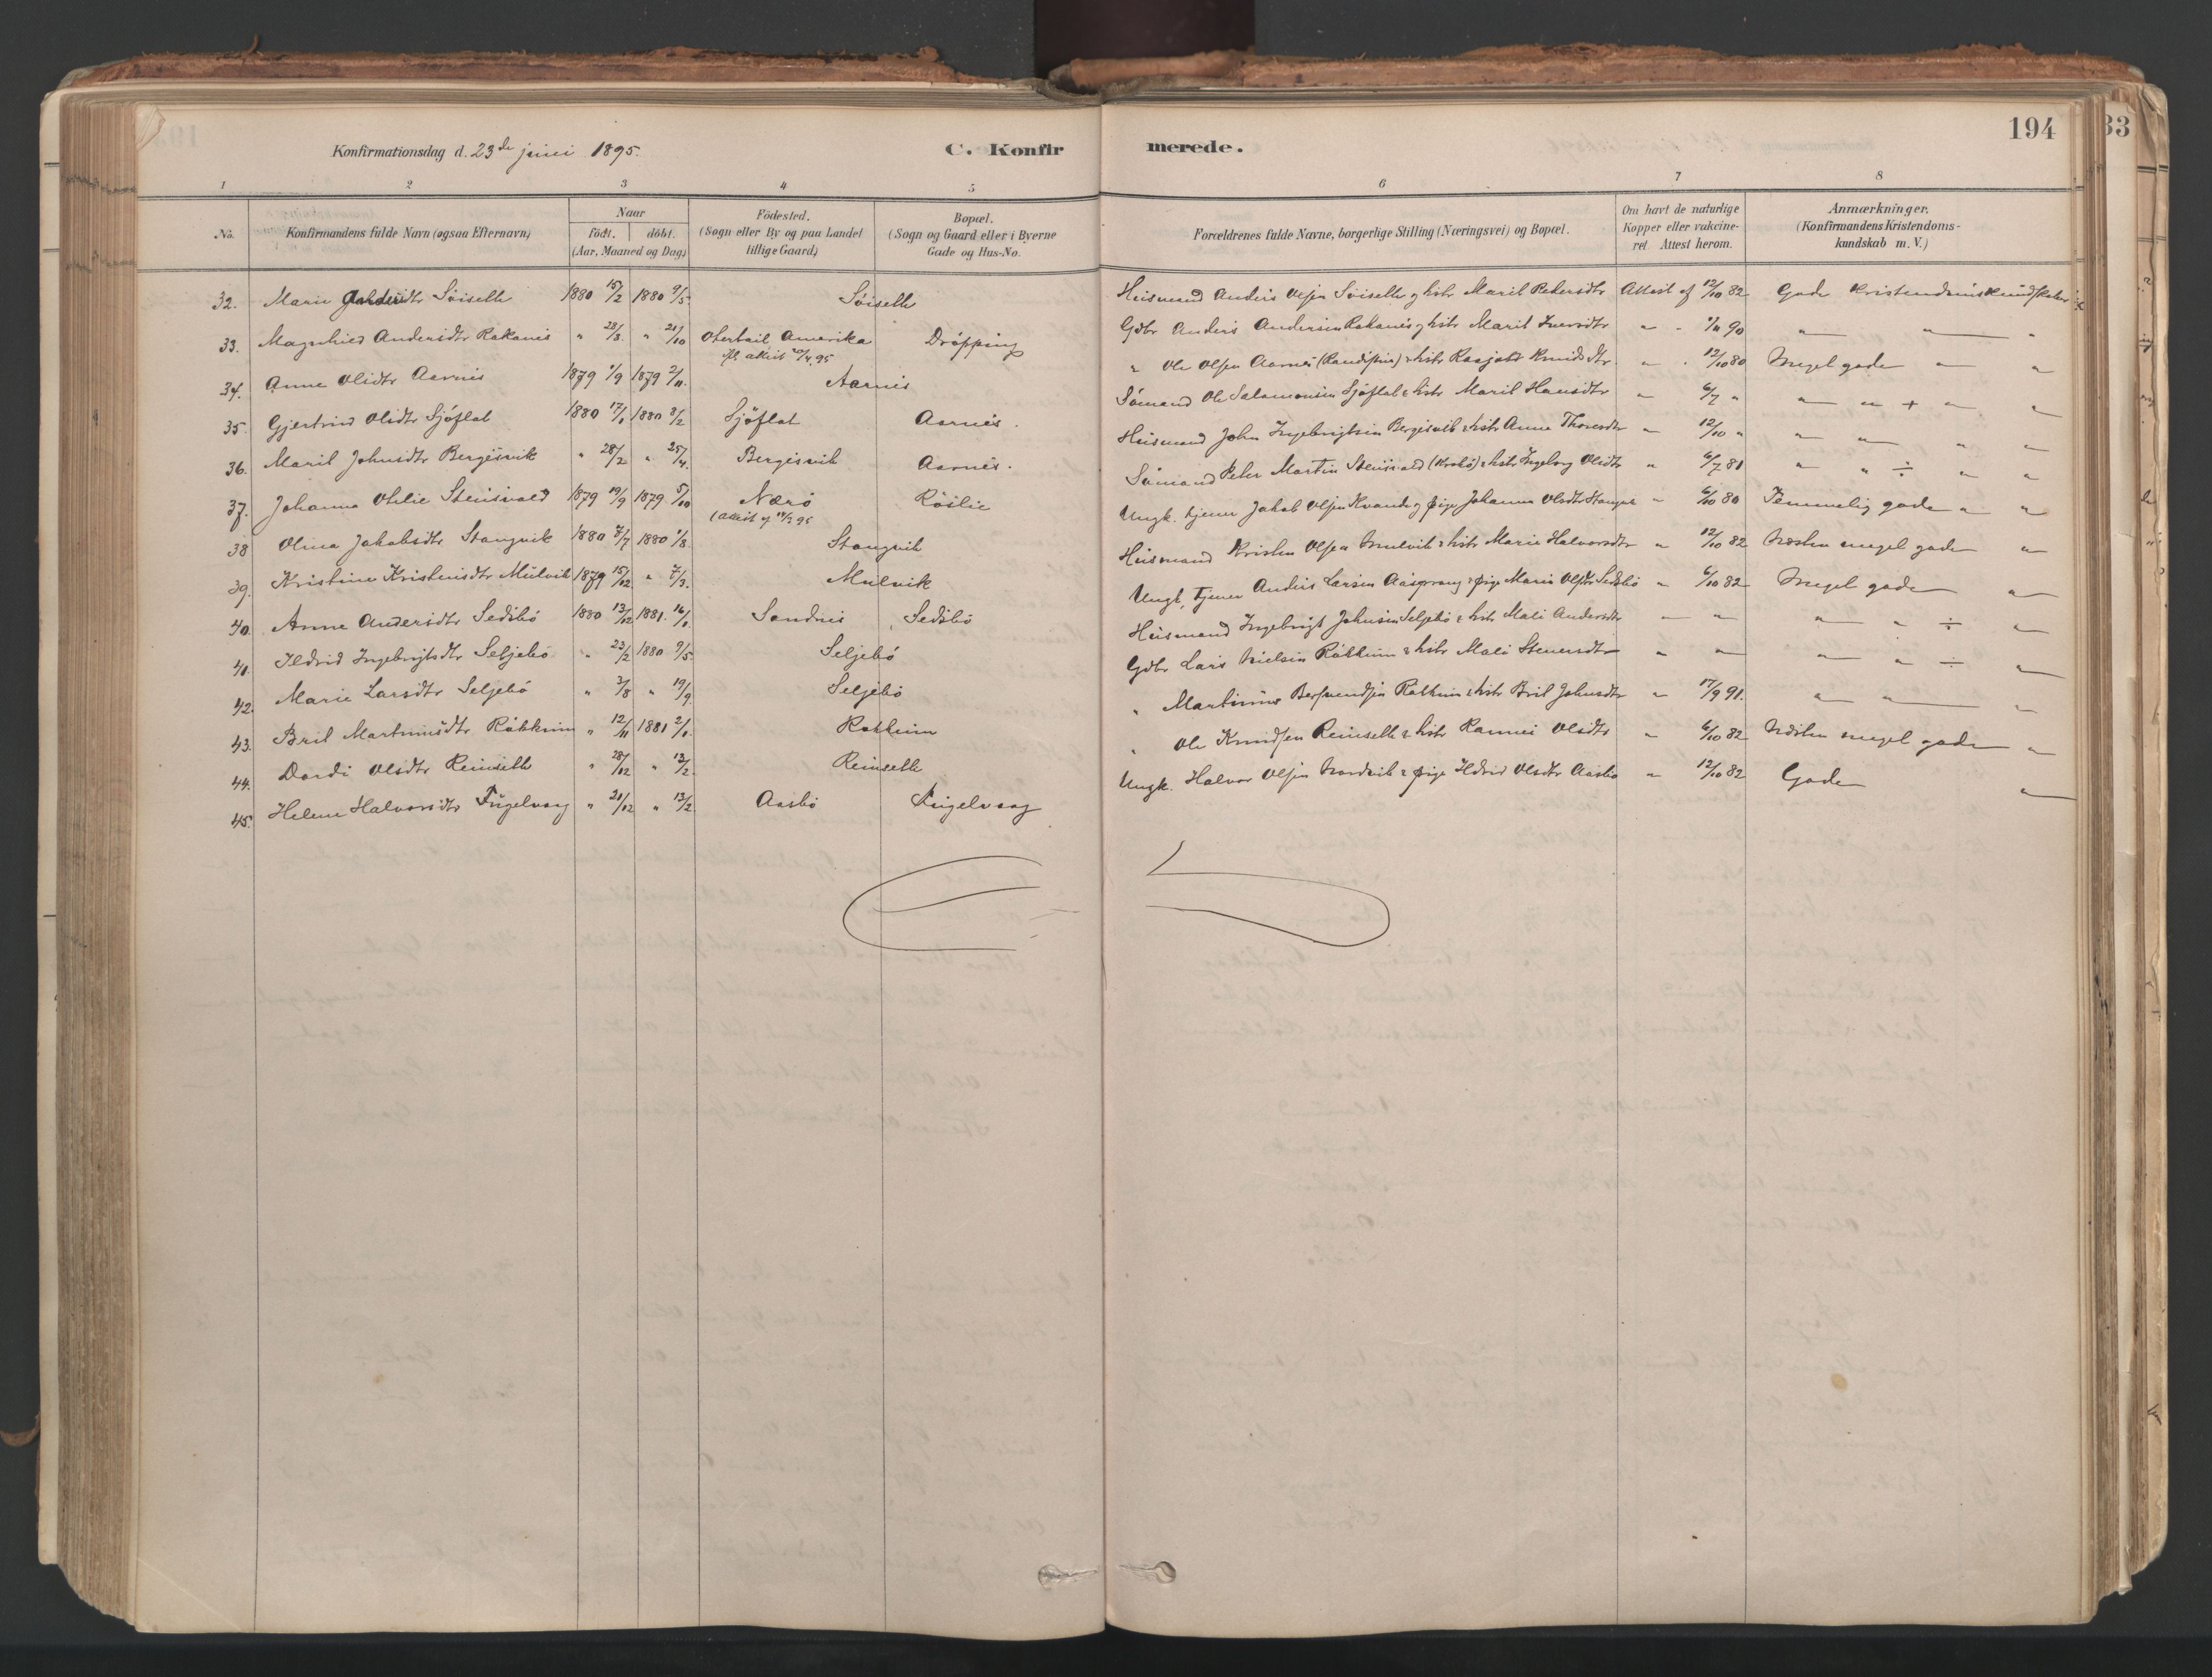 194
33
Konfirmationsdag d. 23de juni 1895.
C. Konfirmerede.
1 2 3 4 5 6 7 8
No. Konfirmandens fulde Navn (ogsaa Efternavn) Naar födt. döbt. (Aar, Maaned og Dag) Födested. (Sogn eller By og paa Landet tillige Gaard) Bopæl. (Sogn og Gaard eller i Byerne Gade og Hus-No. Forældrenes fulde Navne, borgerlige Stilling (Næringsvei) og Bopæl. Om havt de naturlige Kopper eller vakcineret. Attest herom. Anmærkninger. (Konfirmandens Kristendomskundskab m. V.)
32. Marie Andersdtr Söiseth 1880 15/2 1880 9/5 Söiseth Husmand Anders Olsen Söiseth og hstr Marit Pedersdtr Attest af 12/10 82 Gode Kristendomskundskaber
33. Andersdtr Rakanes " 28/3 " 21/10 Otertail Amerika Dröpping Gbr Anders Andersen Rakanes og hstr Marit Iversdtr " " 90 " " "
34. Anne Olsdtr Aarnes 1879 1/9 1879 2/11 Aarnes " Ole Olsen Aarnes & hstr Knudsdtr " " 12/10 80 Meget gode " "
35. Gjertrud Olsdtr Sjöflot 1880 17/1 1880 8/2 Sjöflot Aarnes. Sömand Ole Salamonsen Sjöflot & hstr Marit Hansdtr " 6/7 " " " + " "
36. Marit Johnsdtr Bergisvik " 28/2 " 25/4 Bergisvik Aarnes. Husmand John Ingebrigtsen Bergisvik & hstr Anne Thoresdtr " 12/10 " " " " "
37. Johanna Otelie Stensvold 1879 19/9 1879 5/10 Nærö Röslie Sömand Peter Martin Stensvold & hstr Ingeborg Olsdtr " 6/7 81 " " ÷ " "
38 Olina Jakobsdtr Stangvik 1880 7/7 1880 1/8 Stangvik Ungk. tjener Jakob Olsen Kvande og pige Johanna Olsdtr " 6/10 80 Temmelig gode " "
39. Kristine Kristensdtr Mulvik 1879 15/12 " 7/3. Mulvik Husmand Kristen Olsen Mulvik & hstr Marie Halvorsdtr " 12/10 82 Næsten meget gode "
40. Anne Andersdtr Sedsbö 1880 13/12 1881. 16/1. Sandnes Sedsbö Ungk, tjener Anders Larsen & pige Marie Olsdtr Sedsbö " 6/10 82 Meget gode "
41. Ildrid Ingebrigtsdtr Seljebö " 23/2 1880 9/5. Seljebö Husmand Ingebrigt Johnsen Seljebö & hstr Mali Andersdtr " " " " ÷ "
42. Marie Larsdtr Seljebö " 3/8 " 19/9. Seljebö Gbr Lars Nielsen Rökkum & hstr Mali Stenersdtr " " " " ÷ "
43. Brit Martinusdtr Rökkum " 12/11 1881 2/1. Rökkum " Martinus Rökkum & hstr Brit Johnsdtr " 17/9 91. " " "
44. Dordi Olsdtr Reinseth " 28/12 " 13/2. Reinseth " Ole Knudsen Reinseth & hstr Rannei Olsdtr " 6/10 82 Næsten meget gode "
45. Helene Halvorsdtr Fugelvaag " 21/12 " 13/2. Aasbö Fugelvaag Ungk. Halvor Olsen Nordvik & pige Ildrid Olsdtr Aasbö " 12/10 82 Gode "